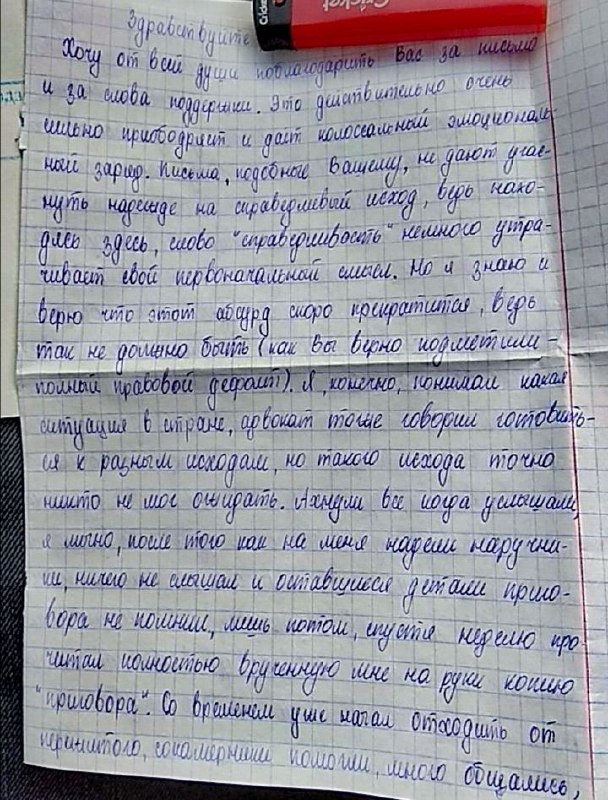 Cricket
Здравствуйте
Хочу от всей души поблагодарить Вас за письмо
и за слова поддержки. Это действительно очень
сильно приободряет и даёт колоссальный эмоциональ-
ный заряд. Письма, подобные Вашему, не дают угас-
нуть надежде на справедливый исход, ведь нахо-
дясь здесь, слово "справедливость" немного утра-
чивает свой первоначальный смысл. Но я знаю и
верю что этот абсурд скоро прекратится, ведь
так не должно быть (как Вы верно подметили -
полный правовой дефолт). Я, конечно, понимал какая
ситуация в стране, адвокат тоже говорил готовить-
ся к разным исходам, но такого исхода точно
никто не мог ожидать. Ахнули все когда услышали,
я лично, после того как на меня надели наручни-
ки, ничего не слышал и оставшиеся детали приго-
вора не помнил, лишь потом, спустя неделю про-
читал полностью врученную мне на руки копию
"приговора". Со временем уже начал отходить от
пережитого, сокамерники помогли, много общались,